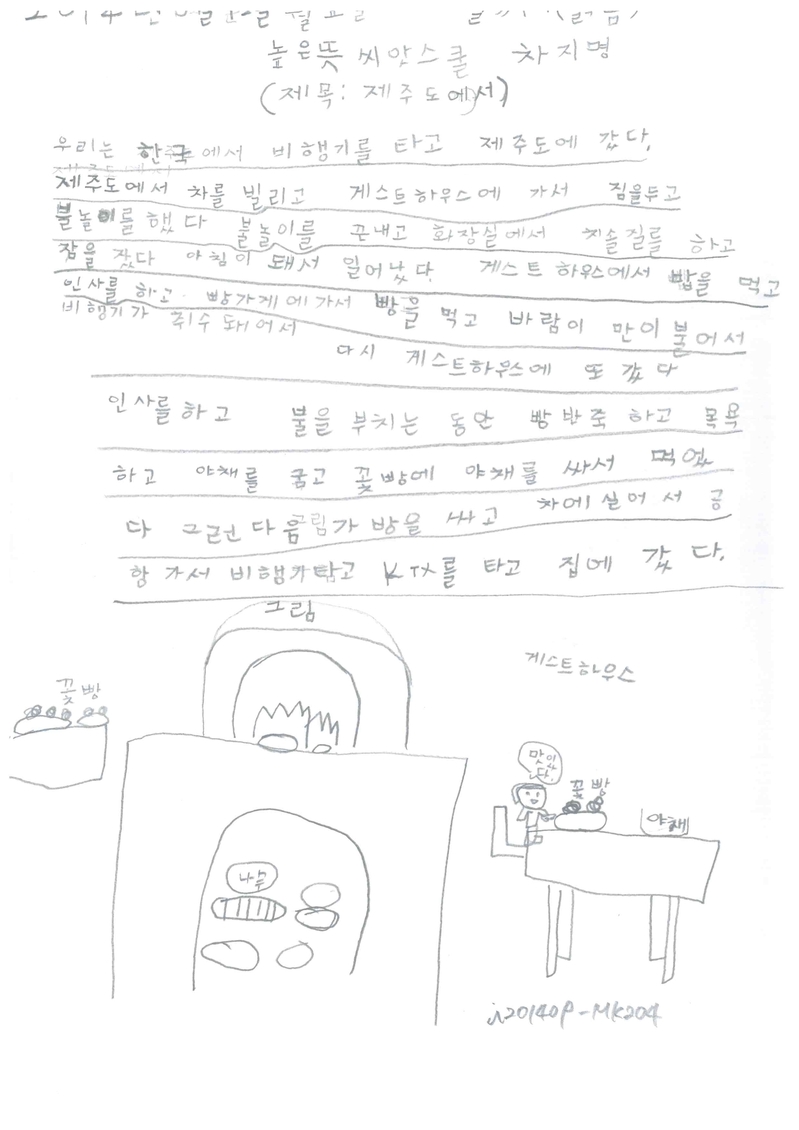 높은뜻 씨앗스쿨 차지명
(제목: 제주도에서)
우리는 한국에서 비행기를 타고 제주도에 갔다.
제주도에서 차를 빌리고 게스트하우스에 가서 짐을두고
불놀이를 했다 불놀이를 끈내고 화장실에서 치솔질를 하고
잠을 잤다 아침이 돼서 일어났다. 게스트하우스에서 밥을 먹고
인사를 하고. 빵가게에가서 빵을 먹고 바람이 만이 불어서
비행기가 취수 돼어서
다시 게스트하우스에 또 갔다
인사를하고 불을 부치는 동안 빵반죽 하고 목욕
하고 야채를 굽고 꽃빵에 야채를 싸서 먹었
다 그런다음 가방을 싸고 차에실어서 공
항 가서 비행기타고 KTX를 타고 집에 갔다.
그림
꽃빵
게스트하우스
맛있
다.
꽃빵
야채
나무
i20140P-MK204